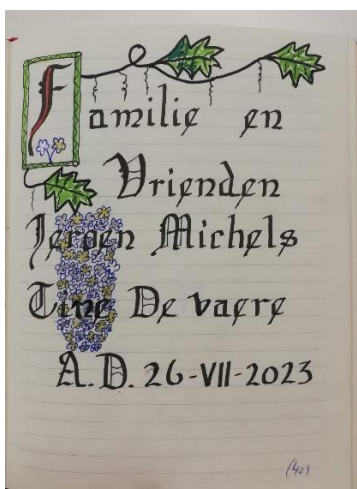 Familie en
Vrienden
Jeroen Michels
Tine De vaere
A.D. 26-VII-2023
(40)